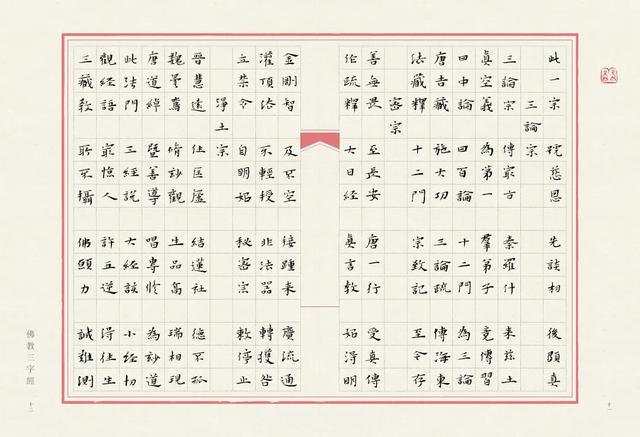 此一宗 號慈恩 先談相 後顯真
三論宗
三論宗 傳最古 秦羅什 來茲土
真空義 為第一 羣弟子 竟傳習
曰中論 曰百論 十二門 為三論
唐吉藏 施大功 三論疏 傳海東
法藏釋 十二門 宗致記 至今存
密宗
善無畏 至長安 唐一行 受真傳
作疏釋 大日經 真言教 始得明
十一
金剛智 及不空 接踵來 廣流通
灌頂法 不輕授 非法器 轉獲咎
立禁令 自明始 秘密宗 敕停止
淨土宗
晉慧遠 住匡廬 結蓮社 德不孤
魏曇鸞 脩妙觀 生品高 瑞相現
唐道綽 暨善導 唱專修 為妙道
此法門 三經說 大經該 小經切
觀經語 最驚人 許五逆 得往生
三藏教 所不攝 佛願力 誠難測
佛教三字經
十二